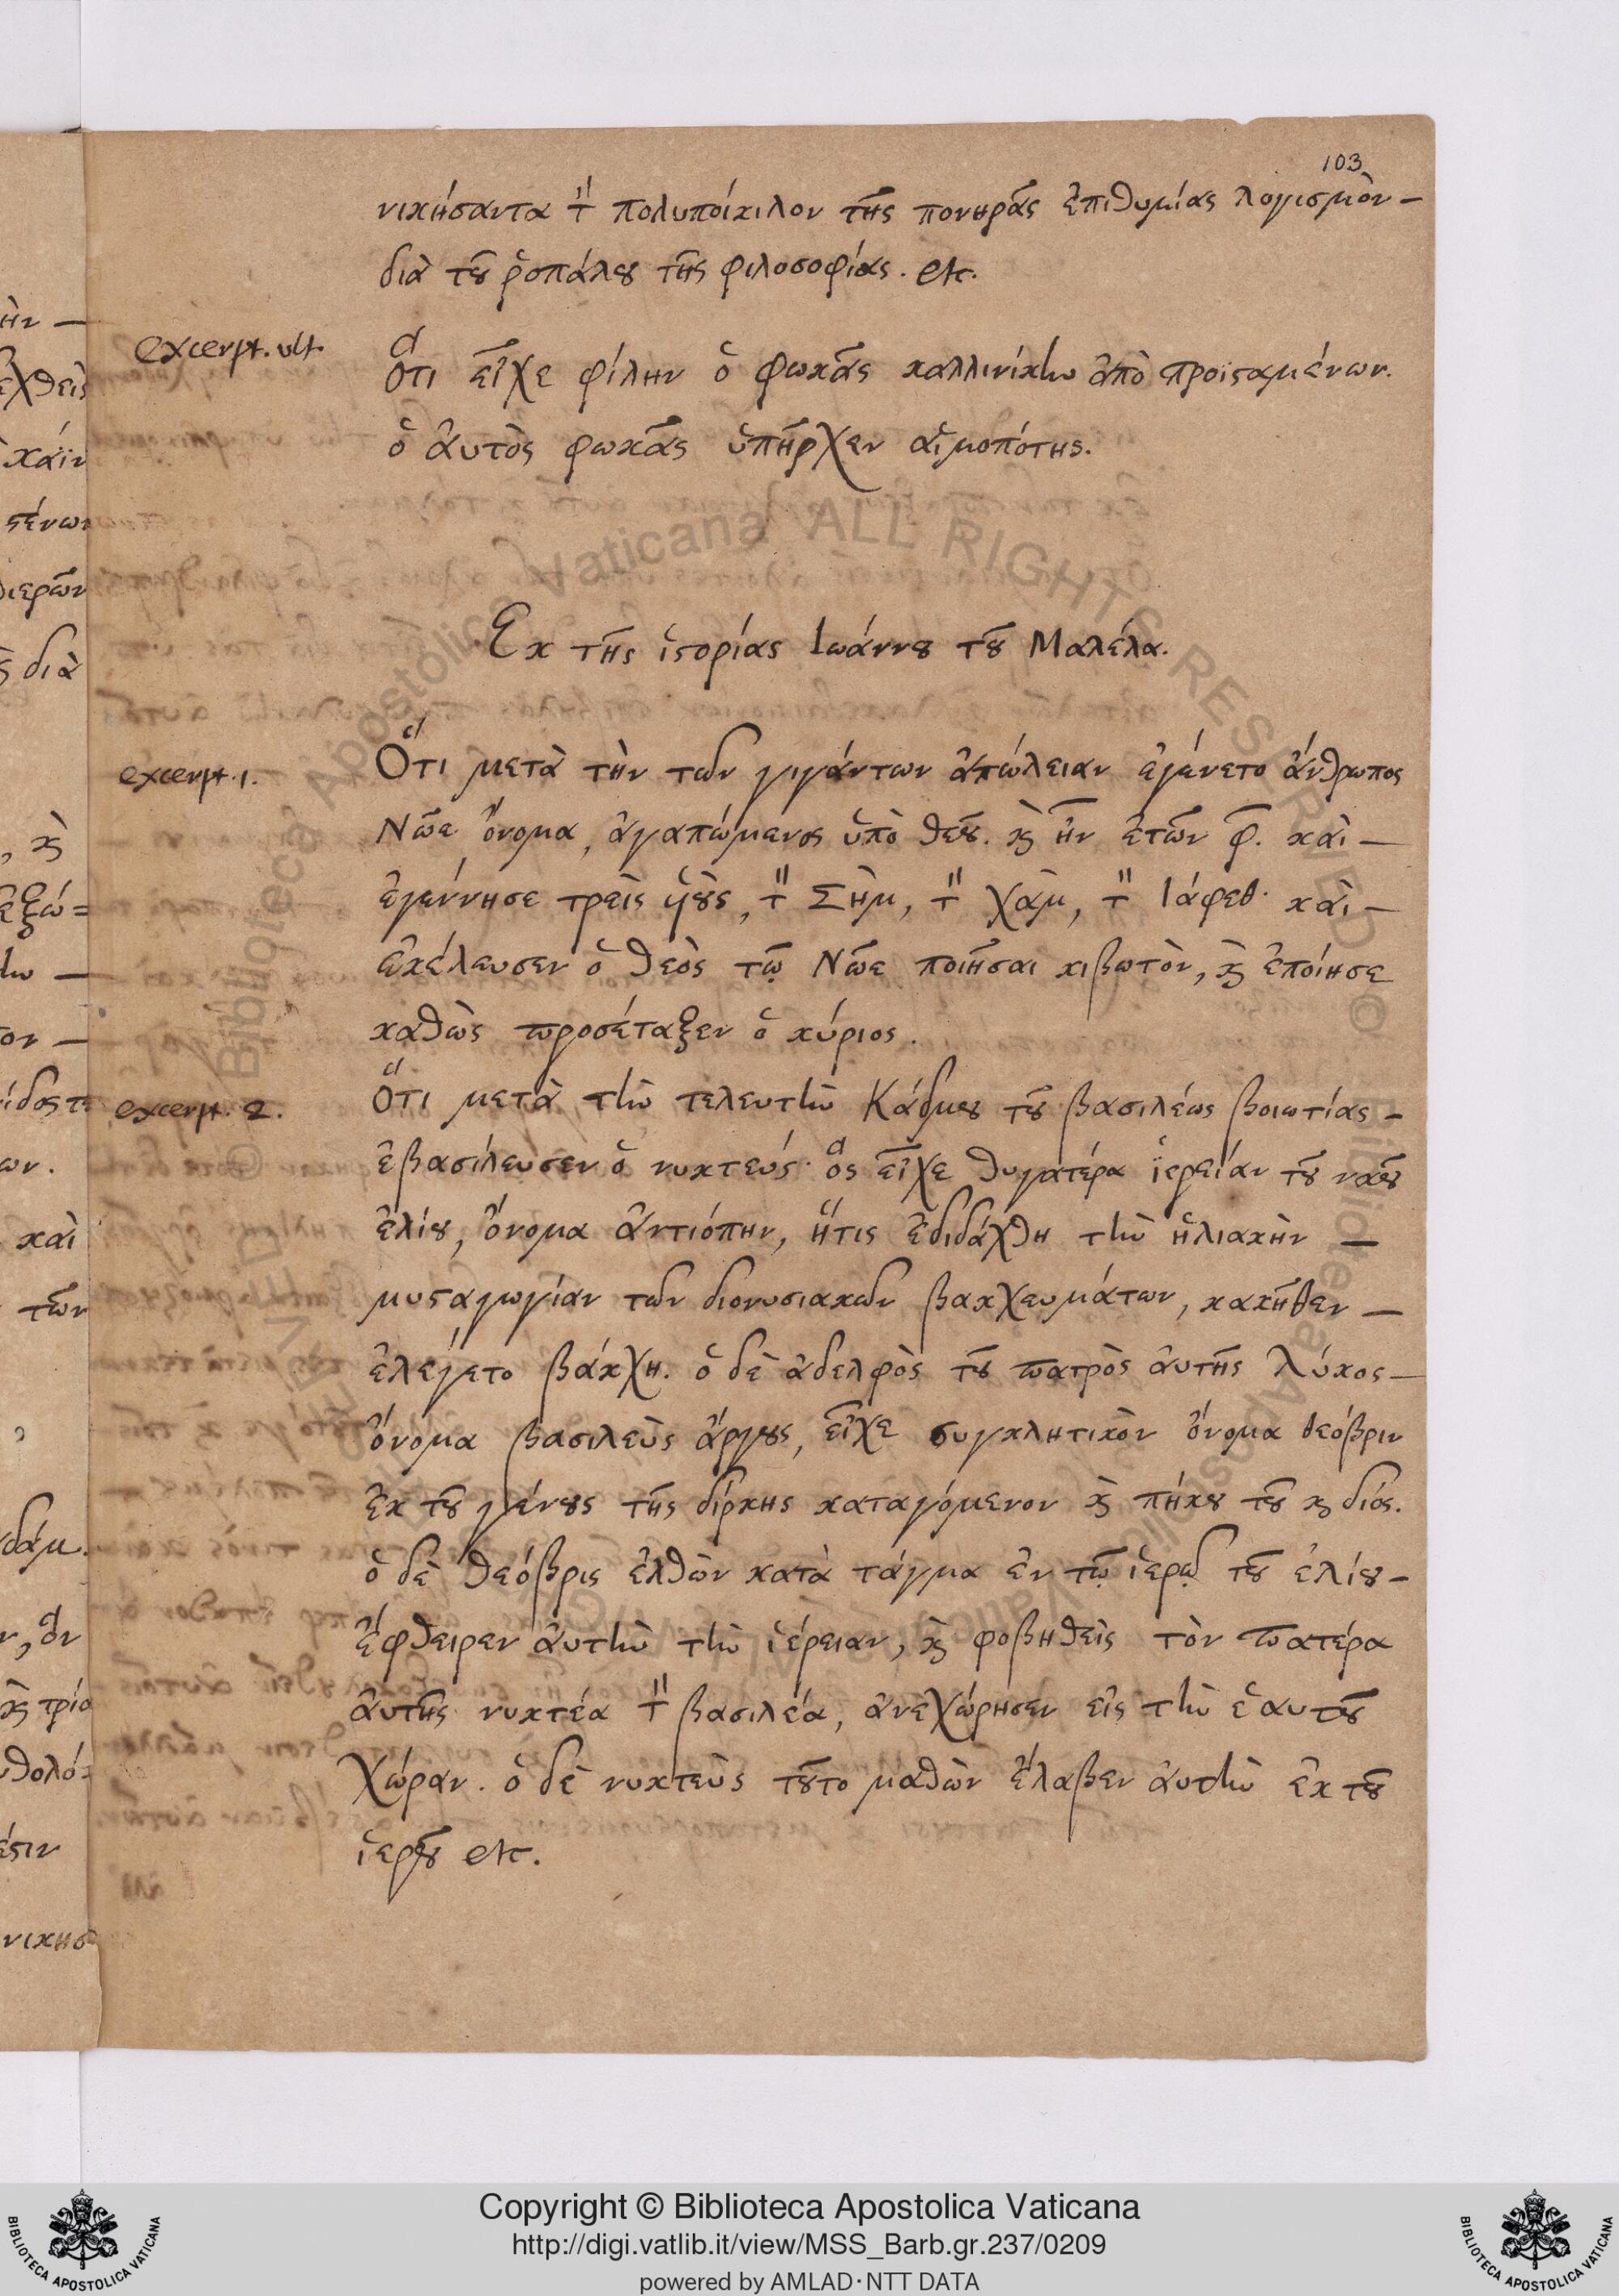 103
νικήσαντα τὸν πολυποίκιλον τῆς πονηρᾶς ἐπιθυμίας λογισμὸν –
διὰ τοῦ ῥοπάλου τῆς φιλοσοφίας. etc.
excerpt. ult.
Ὅτι εἶχε φίλην ὁ φωκᾶς καλλινίκην ἀπὸ προϊσταμένων.
ὁ ἀυτὸς φωκᾶς ὑπῆρχεν αἱμοπότης.
Εκ τῆς ἱστορίας Ιωάννου τοῦ Μαλέλα.
excerpt. 1.
Ὅτι μετὰ τὴν τῶν γιγάντων ἀπώλειαν ἐγένετο ἄνθρωπος
Νῶε ὄνομα, ἀγαπώμενος ὑπὸ θεοῦ. καὶ ἦν ἐτῶν φ. καὶ –
ἐγέννησε τρεὶς ὑιοὺς, τὸν Σὴμ, τὸν χὰμ, τὸν Ιάφεθ· καὶ –
ἐκέλευσεν ὁ θεὸς τῷ Νῶε ποιῆσαι κιβωτὸν, καὶ ἐποίησε
καθὼς προσέταξεν ὁ κύριος.
excerpt. 2.
Ὅτι μετὰ τὴν τελευτὴν Κάδμου τοῦ βασιλέως βοιωτίας –
ἐβασίλευσεν ὁ νυκτεύς· ὃς εἶχε θυγατέρα ἱερείαν τοῦ ναοῦ
ἐλίου, ὄνομα ἀντιόπην, ἥτις ἐδιδάχθη τὴν ἡλιακὴν –
μυσταγωγίαν τῶν διονυσιακῶν βακχευμάτων, κακῆθεν –
ἐλεγετο βάκχη. ὁ δὲ ἀδελφὸς τοῦ πατρὸς ἀυτῆς λύκος –
ὄνομα βασιλεὺς ἄργους, εἶχε συγκλητικὸν ὄνομα θεόβριν
ἐκ τοῦ γένους τῆς δίρκης καταγόμενον καὶ πήκου τοῦ καὶ διός.
ὁ δὲ θεόβρις ἐλθὼν κατὰ τάγμα ἐν τῷ ἱερῷ τοῦ ἐλίου –
ἔφθειρεν ἀυτὴν τὴν ἱέρειαν, καὶ φοβηθεὶς τὸν πατέρα
ἀυτῆς νυκτέα τὸν βασιλέα, ἀνεχώρησεν εἰς τὴν ἑαυτοῦ
χώραν. ὁ δὲ νυκτεὺς τοῦτο μαθὼν ἔλαβεν ἀυτὴν ἐκ τοῦ
ἱεροῦ etc.
Copyright © Biblioteca Apostolica Vaticana
http://digi.vatlib.it/view/MSS_Barb.gr.237/0209
powered by AMLAD·NTT DATA
BIBLIOTECA APOSTOLICA VATICANA
BIBLIOTECA APOSTOLICA VATICANA